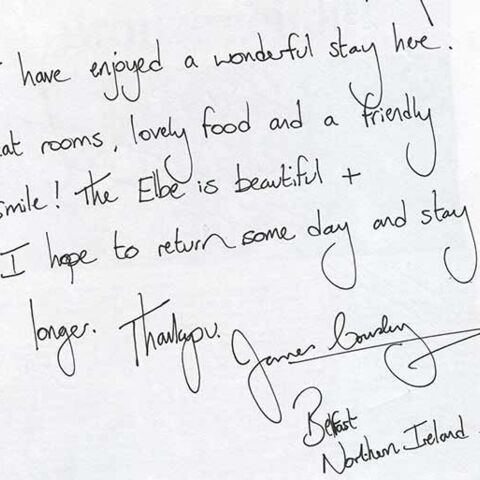 have enjoyed a wonderful stay here.
at rooms, lovely food and a friendly
smile! The Elbe is beautiful +
I hope to return some day and stay
longer. Thankyou.
James
Belfast
Northern Ireland.